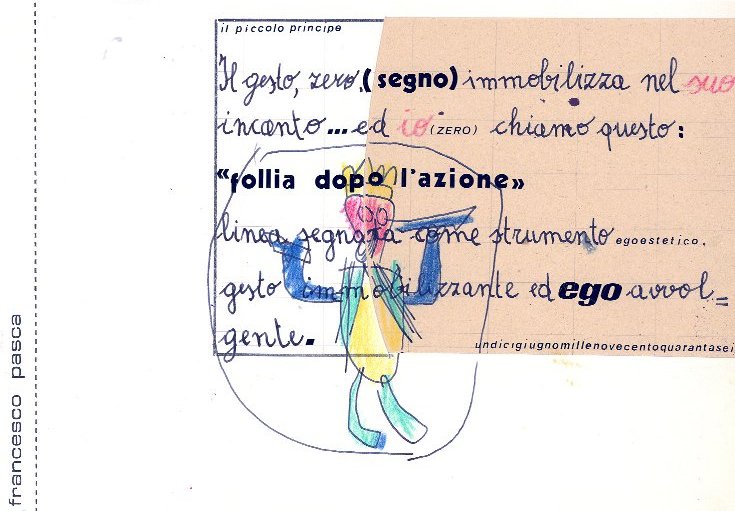 il piccolo principe
Il gesto, zero, (segno) immobilizza nel suo
incanto... ed io (ZERO) chiamo questo:
«follia dopo l'azione»
linea segnata come strumento egoestetico.
gesto immobilizzante ed ego avvol=
gente.
undicigiugnomillenovecentoquarantasei
francesco pasca